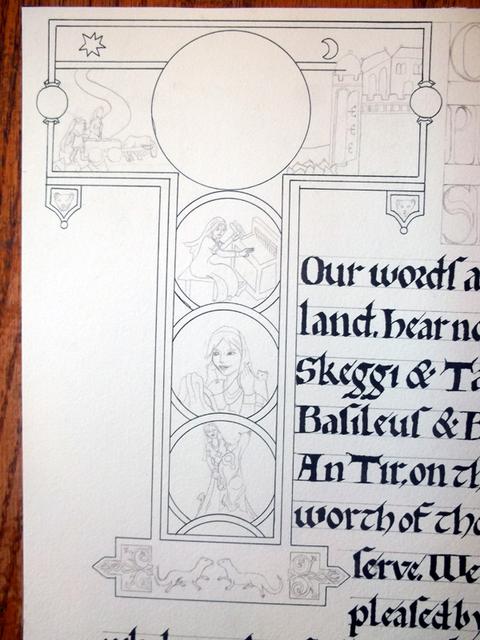 Our words a
land. hear no
Skeggi & Ta
Basileus & B
An Tir, on th
worth of the
serve. We
pleased by